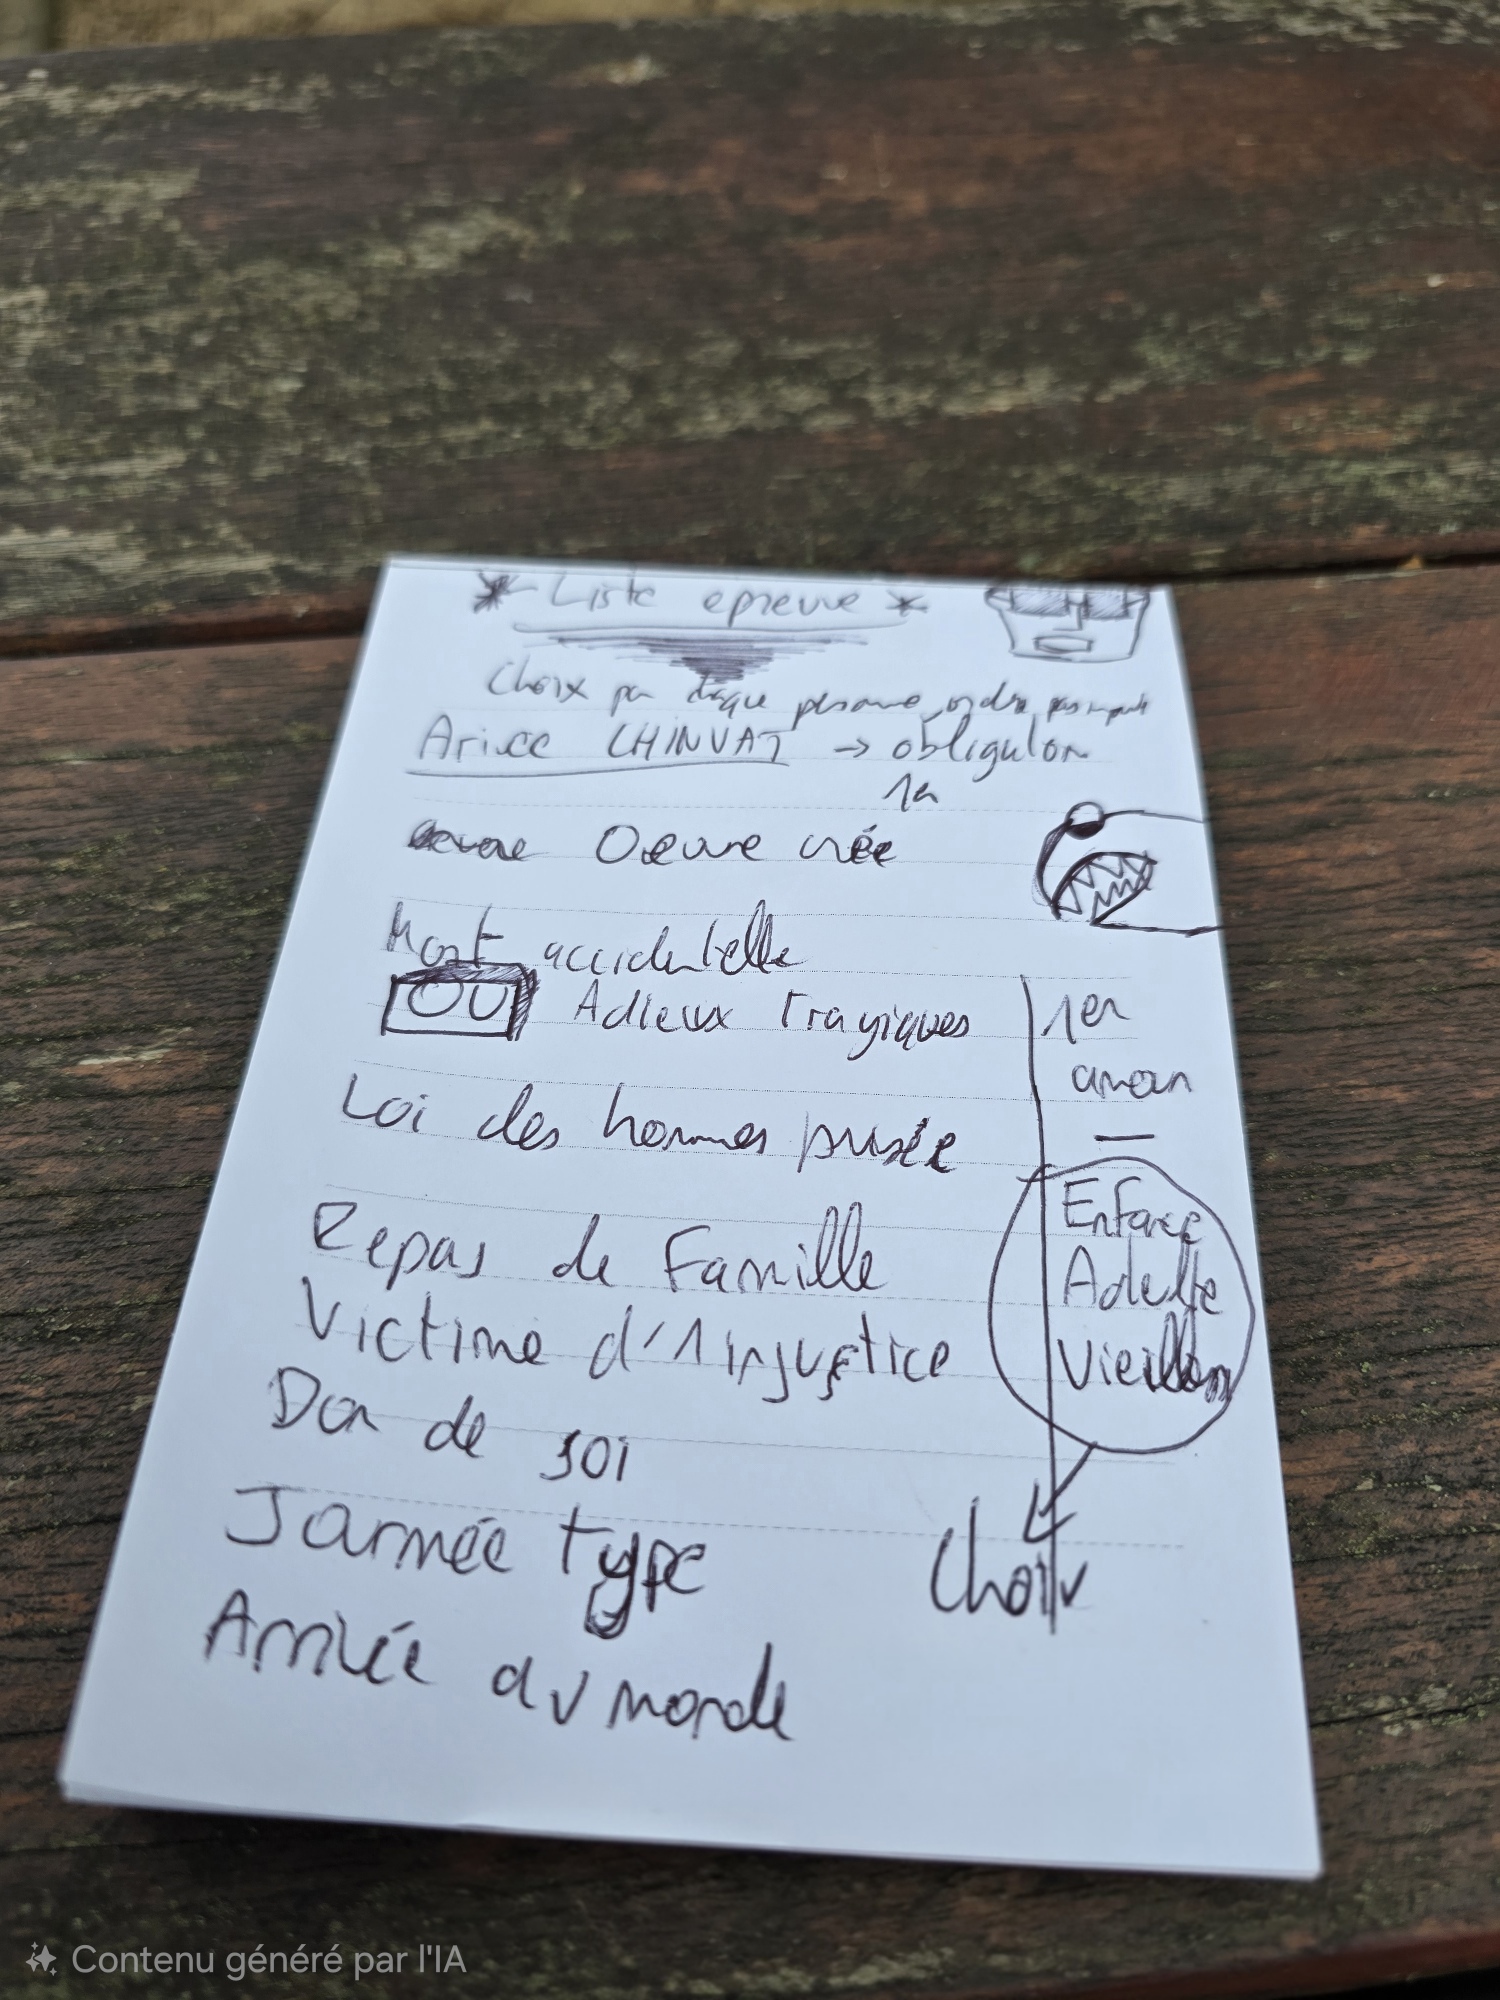 * Liste epreuve *
Choix par chaque personne, ordre pas
CHINVAT →
1er
Oeuvre crée
Mort accidentelle
OU Adieux tragiques
Loi des hommes
Repas de Famille
Victime d'1 injustice
Don de soi
Journée type
Arrivée au monde
1er
amour
—
Enfance
Adulte
Choix
Contenu généré par l'IA